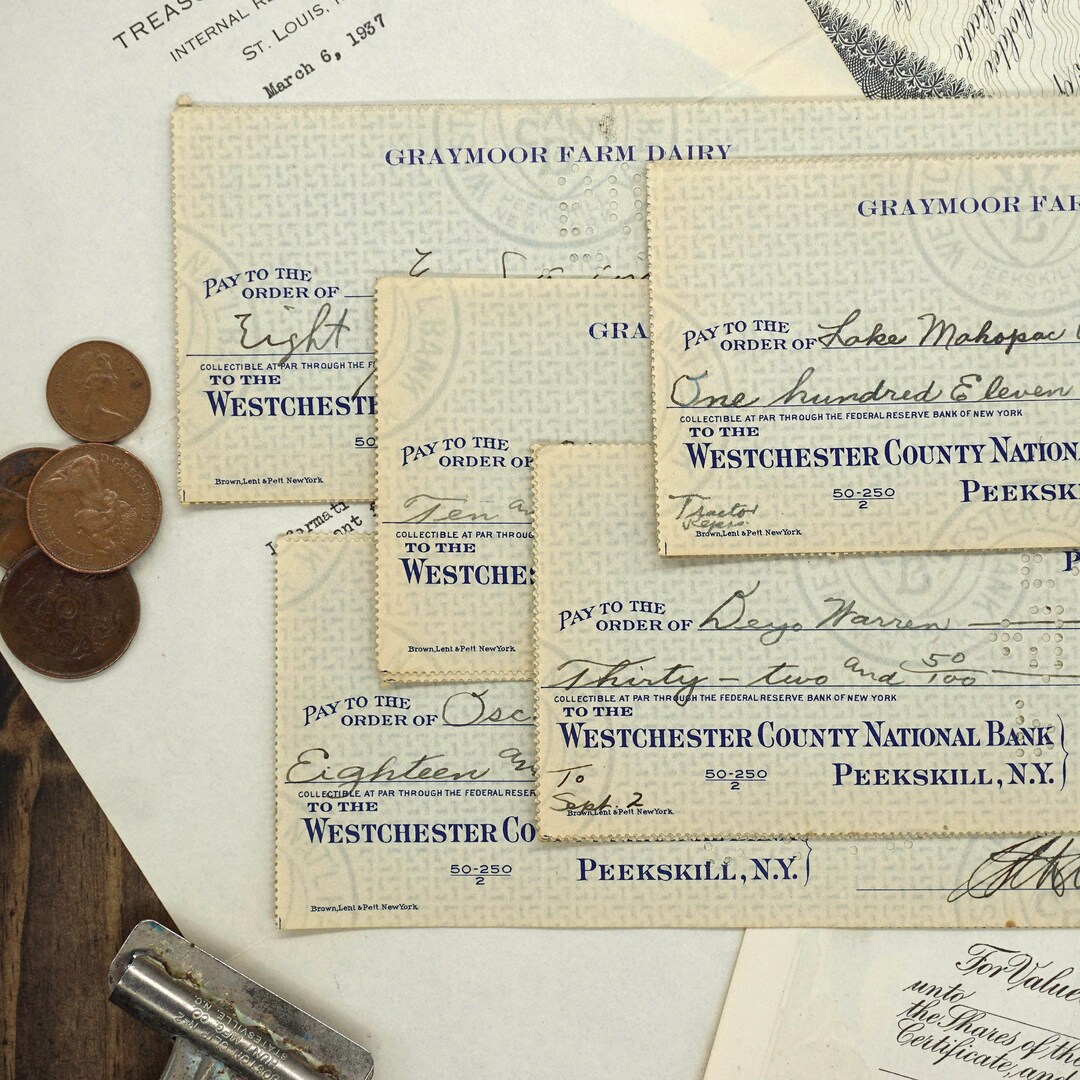 TREAS
INTERNAL R
ST. LOUIS,
March 6, 1937
GRAYMOOR FARM DAIRY
PAY TO THE
ORDER OF
Eight
COLLECTIBLE AT PAR THROUGH THE F
TO THE
WESTCHEST
50
Brown, Lent & Pett New York
GRAYMOOR FAR
PAY TO THE
ORDER OF Lake Mahopac
One hundred Eleven
COLLECTIBLE AT PAR THROUGH THE FEDERAL RESERVE BANK OF NEW YORK
TO THE
WESTCHESTER COUNTY NATION
50-250
2
PEEKSK
Tractor
Reprs.
Brown, Lent & Pett New York
GRA
PAY TO THE
ORDER OF
Ten an
COLLECTIBLE AT PAR THROUG
TO THE
WESTCHES
Brown, Lent & Pett New York
P
PAY TO THE
ORDER OF Deyo Warren
Thirty - two and 50/100
COLLECTIBLE AT PAR THROUGH THE FEDERAL RESERVE BANK OF NEW YORK
TO THE
WESTCHESTER COUNTY NATIONAL BANK
50-250
2
PEEKSKILL, N.Y.
To
Sept. 2
Brown, Lent & Pett New York
PAY TO THE
ORDER OF Osc
Eighteen an
COLLECTIBLE AT PAR THROUGH THE FEDERAL RESER
TO THE
WESTCHESTER CO
50-250
2
PEEKSKILL, N.Y.
Brown, Lent & Pett New York
For Value
unto
the Shares of the
Certificate, and
HUNT MFG. CO.
STATESVILLE, N.C.